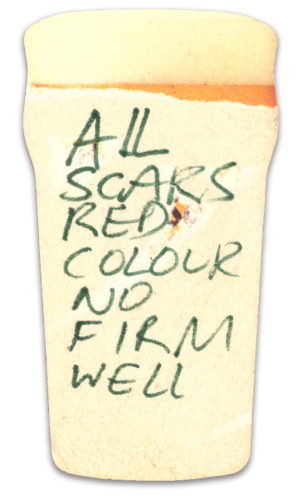 All
SCARS
RED
COLOUR
NO
FIRM
WELL